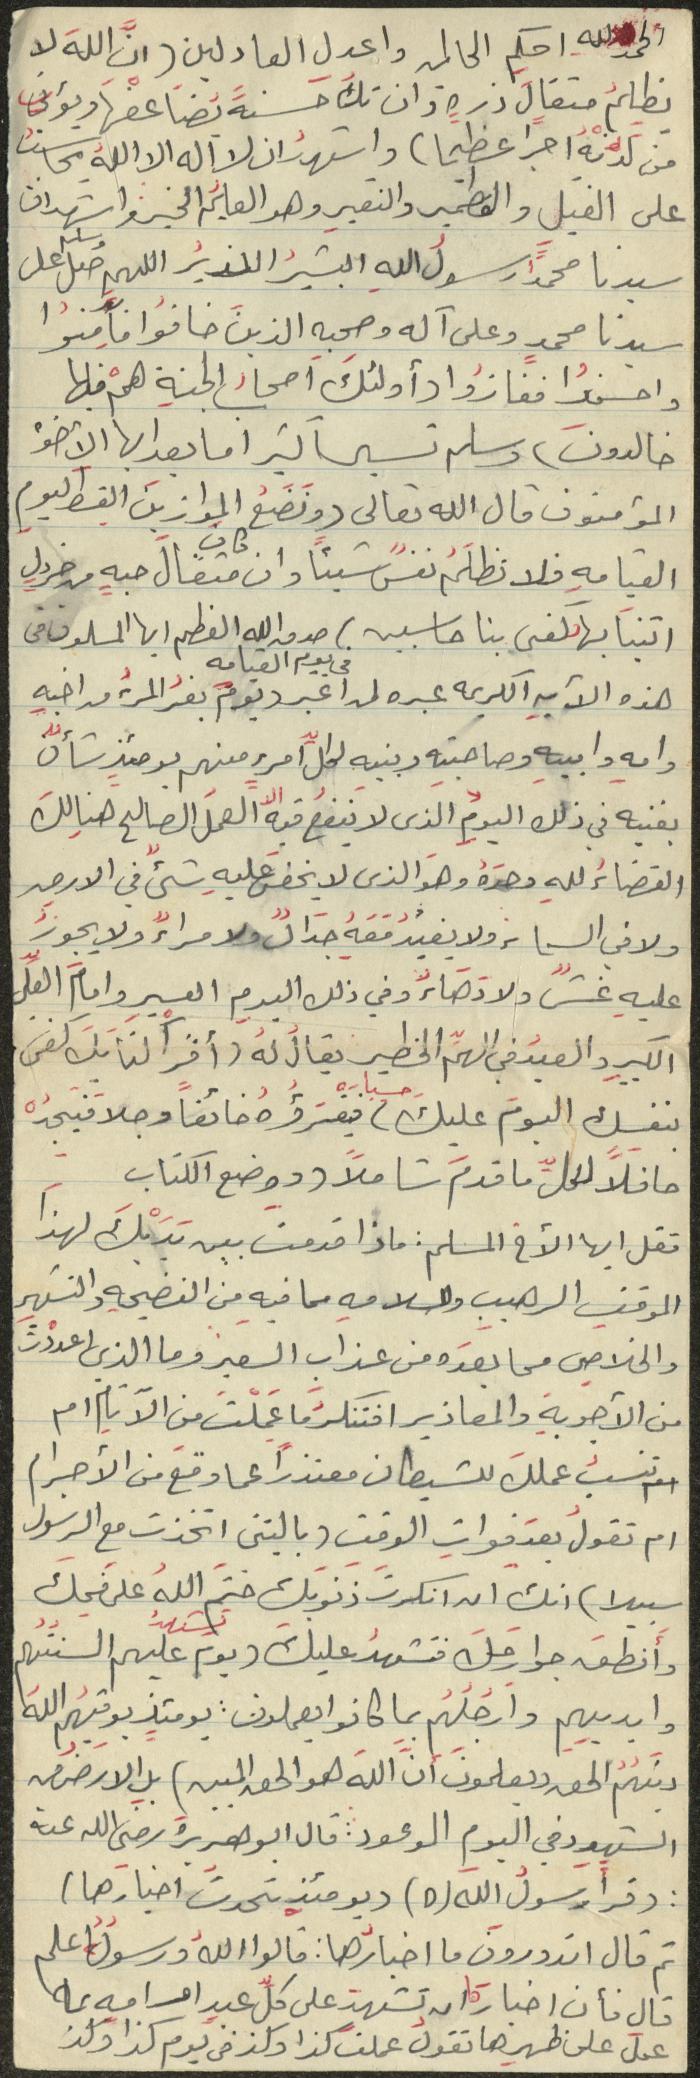 الحمد لله احكم الحاكمين واعدل العادلين (انَّ اللهَ لا
يظلمُ مثقالَ ذرةٍ وان تكُ حَسنةً يُضَاعفْهَا ويؤتِ
من لَدُنْهُ اجرا عظيما) واشهدُ ان لا اله الا اللهُ يحاسبُ
على الفتيل والقطمير والنقير وهو العليمُ الخبير واشهد ان
سيدنا محمدًا رسولُ اللهِ البشيرُ النذيرُ اللهم صَلِّ وسلم على
سيدنا محمدٍ وعلى آله وصحبهِ الذين خافوُا فأَمِنوُا
واحسنوُا ففازوُا (أولئكَ اصحابُ الجنةِ همْ فيها
خالدونَ) وسلم تسليما كثيرا اما بعد ايها الأخوةُ
المؤمنون قال الله تعالى (وَنَضَعُ الموازينَ القسطَ ليومِ
القيامهِ فلا تظلَمُ نفسٌ شيئاً وان كان مثقالَ حبهٍ من خردلٍ
اتينَا بها وكفى بنا حاسبين) صدق الله العظيم ايها المسلمون في
هذه الآيهِ الكريمه عبره لمن اعتبر في يوم القيامه (يومَ يفرُ المرءُ من اخيهِ
وامهِ وابيهِ وصاحبتهِ وبنيهِ لكلِّ امرءٍ منهم يومئذٍ شأنٌ
يغنيه) في ذلك اليومِ الذى لا يَنفعُ فيهِ الاَّ العملُ الصالح هنالكَ
القضَاءُ للهِ وحدَهُ وهوَ الذى لا يخفَى عليهِ شئٌ في الارض
ولا في السماء ولا يفيدُ مَعَهُ جدَالٌ ولا مراءٌ ولا يجوزُ
عليهِ غشٌ ولا دهَاءٌ وفي ذلك اليومِ العسيرِ وامامَ العلىِّ
الكبيرِ والعبدُ في الهمِّ الخطيرِ يقالُ لهُ (أقرأْ كتَابَكَ كفَى
بنفسك اليومَ عليكَ حسيبا) فيَقْرَؤُهُ خائفاً وجلا فيَجدُهُ
حافلاً لكلِّ ما قدمَ شاملاً (ووضع الكتاب
فقل ايها الأخ المسلم: ماذا قدمت بين يَدَيْكَ لهذَا
الموقفِ الرهيبِ والسلامهِ مما فيهِ من الفضيحهِ والتشهيرِ
والخلاصِ مما بعدَه من عذاب السعيرِ وما الذي اعددْتَ
من الأجوبةِ والمعاذير افتنكرُ مَا عَمِلْتَ من الآثامِ ام
ام تنسبُ عملكَ للشيطان معتذراً عما وقعَ من الأجرام
ام تقولُ بعدَ فواتِ الوقت (ياليتنى اتخذت مع الرسول
سبيلا) انك ان انكرتَ ذنوبَك ختَمَ اللهُ على فمِكَ
وأَنطقَ جوارِحَكَ فتشهدُ عليكَ (يومَ تشهدُ عليهم السنتُهم
وايديهم وأرجُلُهُم بما كانوا يعملون: يومئذٍ يوفيهُم اللهُ
دينَهُمُ الحقَ ويعلمونَ أنَّ اللهَ هو الحق المبين) بلِ الارضُ من
الشهودِ في اليوم الموعود: قال ابو هريرةَ رضى الله عنه
: (قرأ رسولُ اللهَ (ص) (يومئذٍ تحدثُ اخبارَهَا)
ثم قال اتدرونَ ما اخبارُهَا: قالوا اللهُ ورسولُهُ اعلم
قال فأن اخبارَهَا ان تشهدَ على كلِّ عبدٍ او امهٍ بما
عمل على ظهرِها تقولُ عملتَ كذا وكذا في يوم كذا وكذا